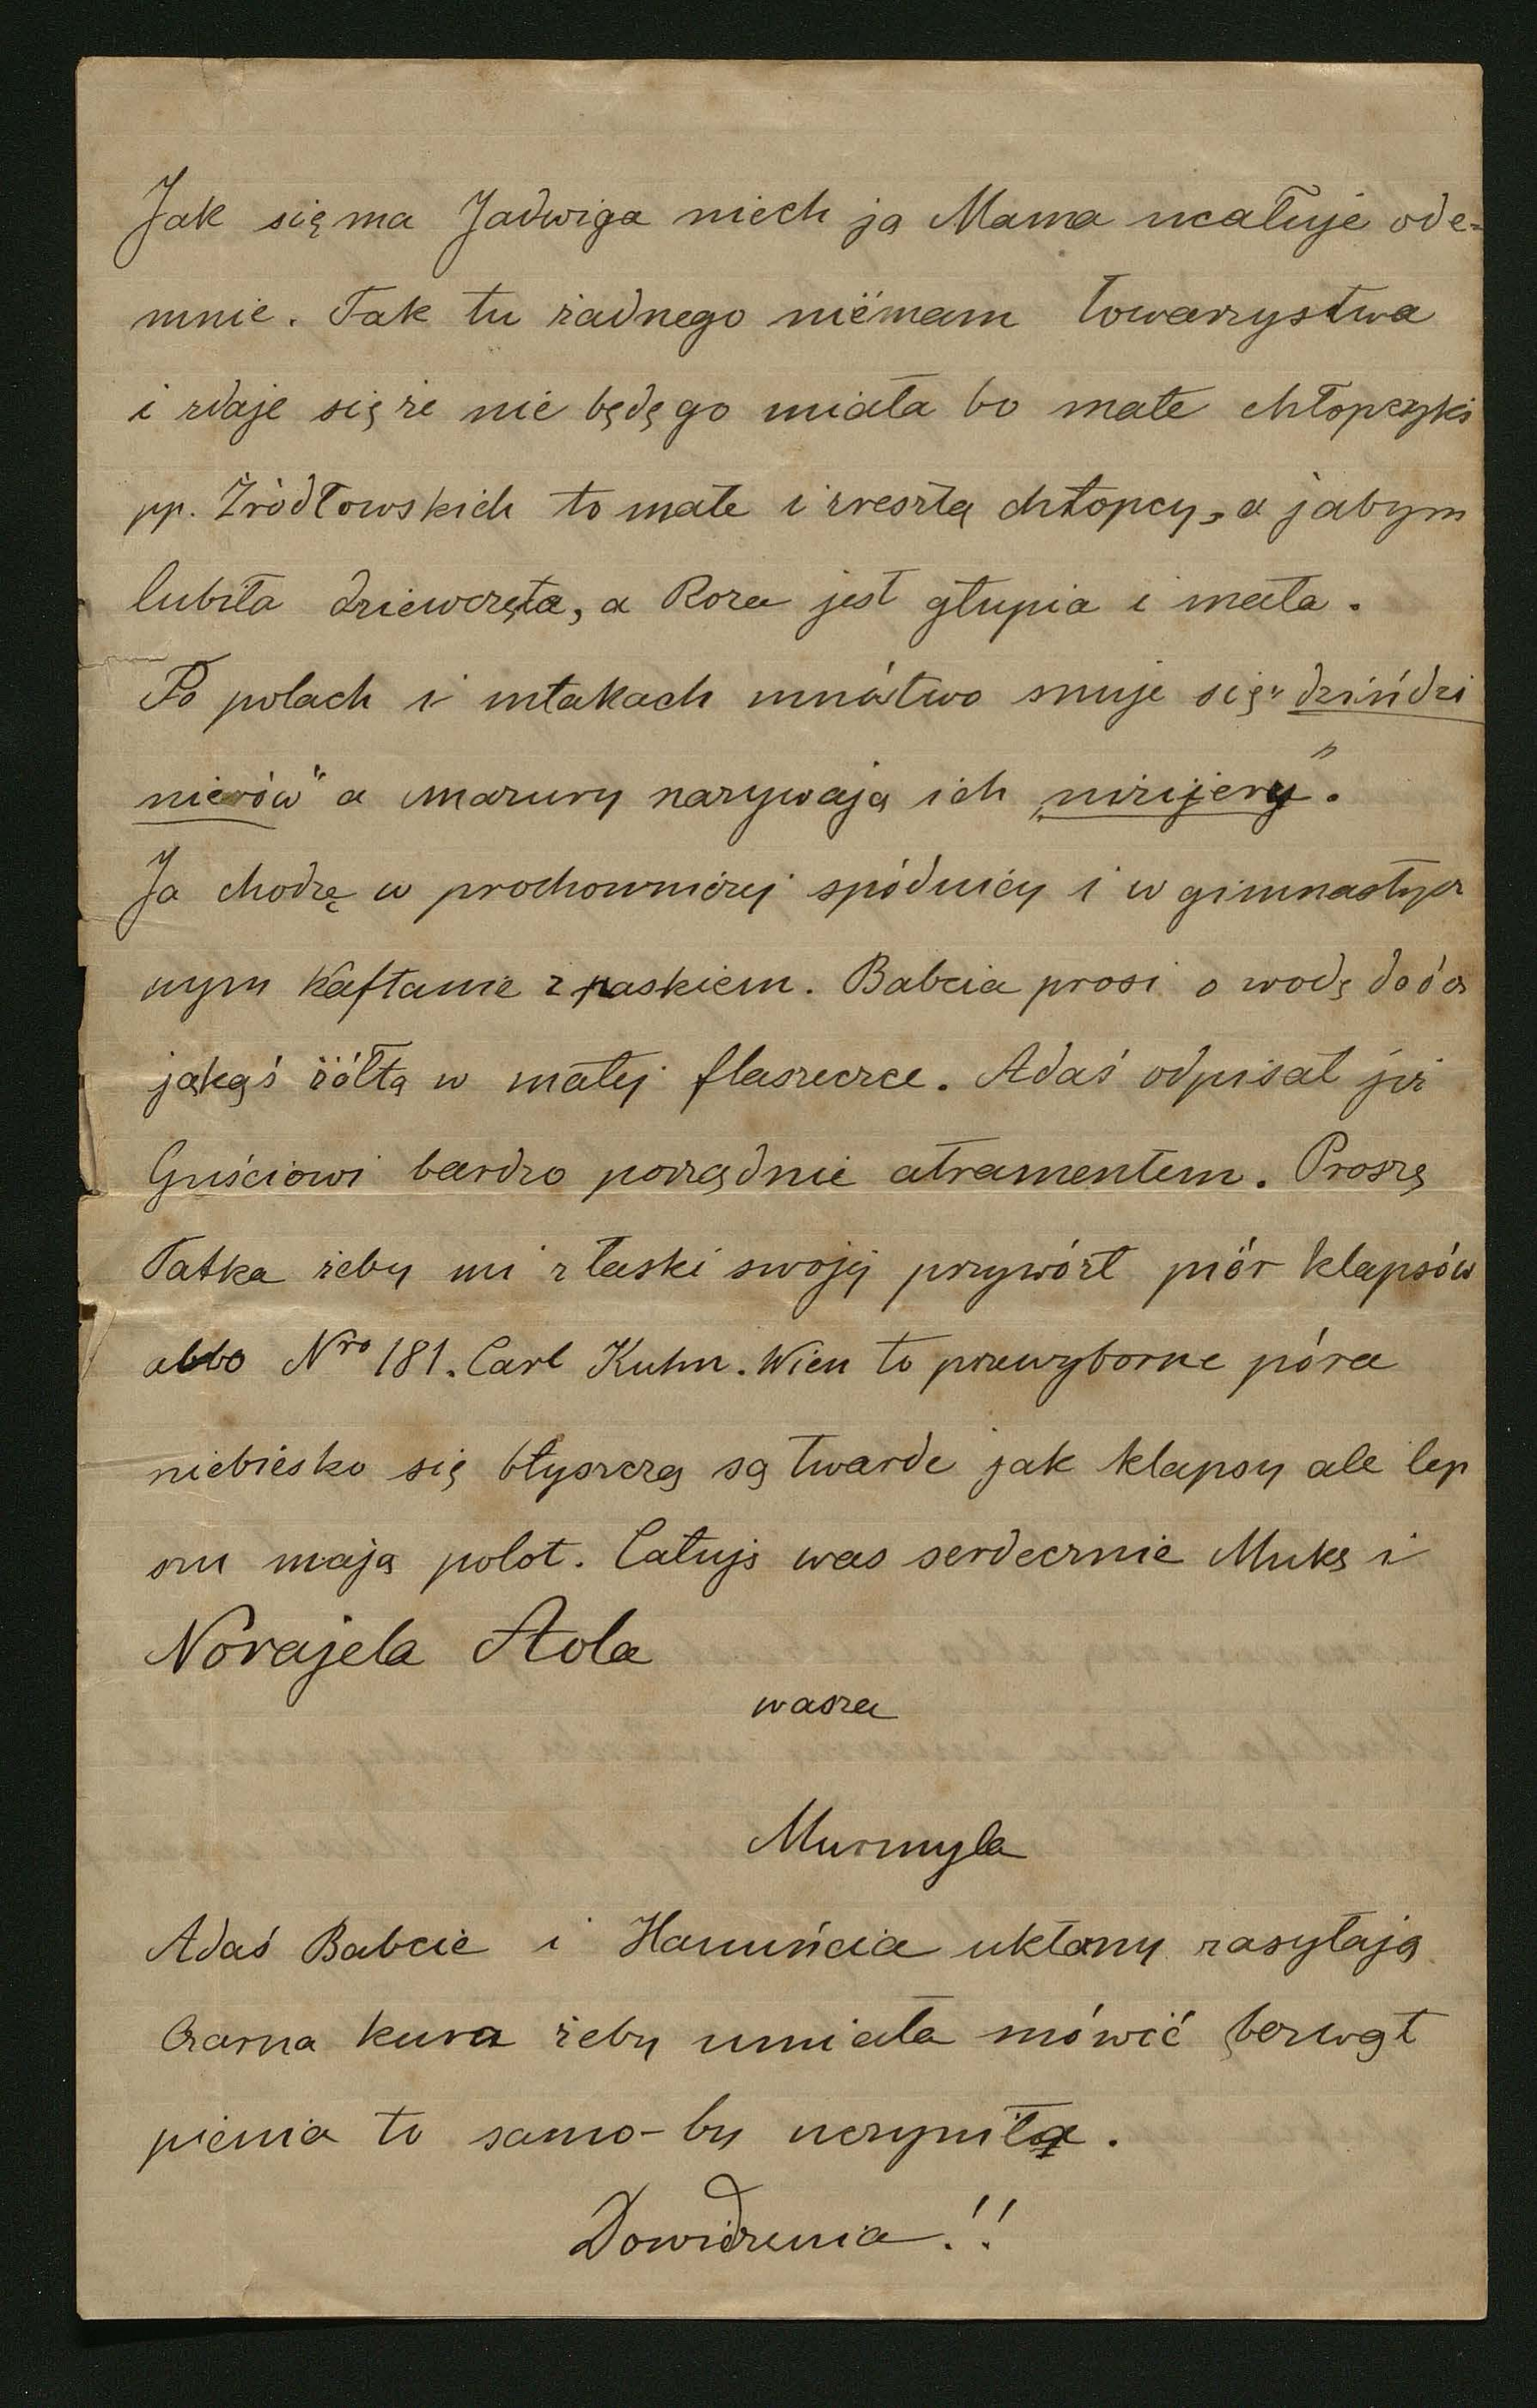 Jak się ma Jadwiga niech ją Mama ucałuje ode=
mnie. Tak tu żadnego niemam towarzystwa
i zdaje się że nie będę go miała bo małe chłopczyki
pp. Źródłowskich to małe i zresztą chłopcy, a jabym
lubiła dziewczęta, a Róza jest głupia i mała.
Po polach i młakach mnóstwo snuje się "dzińdzi
nierów" a mazury nazywają ich „niżijery".
Ja chodzę w prochowniczej spódnicy i w gimnastycz
nym kaftanie z paskiem. Babcia prosi o wodę do ócz
jakąś żółtą w małej flaszeczce. Adaś odpisał już
Guściowi bardzo porządnie atramentem. Proszę
Tatka żeby mi z łaski swojej przywózł piór klapsów
albo Nro 181. Carl Kuhn. Wien to przewyborne pióra
niebiesko się błyszczą są twarde jak klapsy ale lep
szy mają polot. Całuję was serdecznie Mukę i
Norajela Aola
wasza
Murmyla
Adaś Babcie i Hanuńcia ukłony zasyłają
Czarna kura żeby umiała mówić bezwąt
pienia to samo-by uczyniła.
Dowidzenia!!